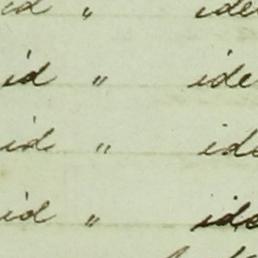 id " ide
id " ide
id " ide
id " ide